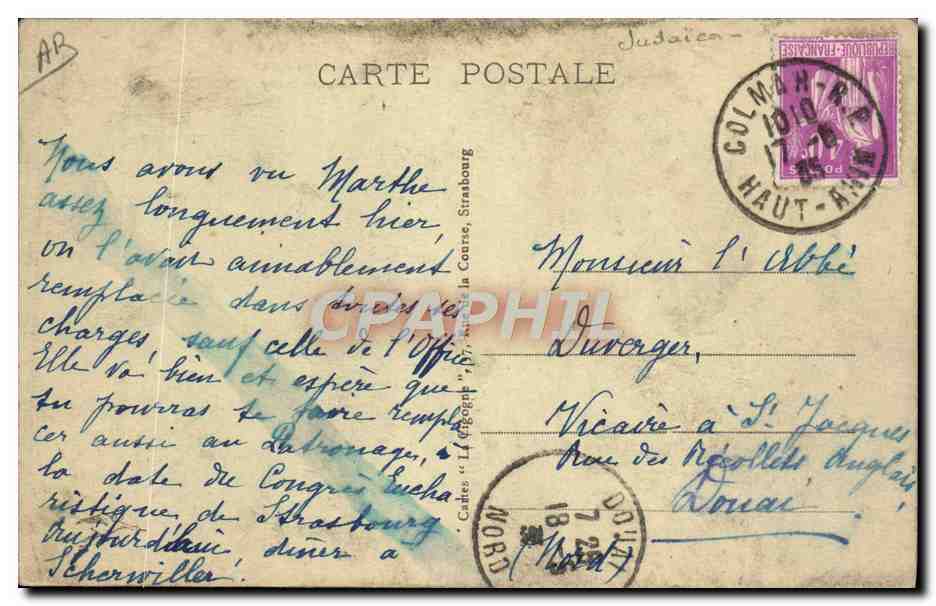 AB
Judaica
CARTE POSTALE
REPUBLIQUE-FRANÇAISE
POSTES
COLMAR-R.P.
1010
17-
35
HAUT-RHIN
Nous avons vu Marthe
assez longuement hier,
on l'avait aimablement
remplacée dans toutes ses
charges, sauf celle de l'Office
Elle va bien et espère que
tu pourras te faire rempla
cer aussi au Patronage, à
la date du Congrès Eucha
ristique de Strasbourg
Aujourd'hui dîner à
Scherwiller.
Cartes "La Cigogne", 7, Rue de la Course, Strasbourg
CPAPHIL
Monsieur l'Abbé
Duverger,
Vicaire à St Jacques
Rue des Récollets Anglais
Douai
(Nord)
DOUAI
7 25
18
NORD